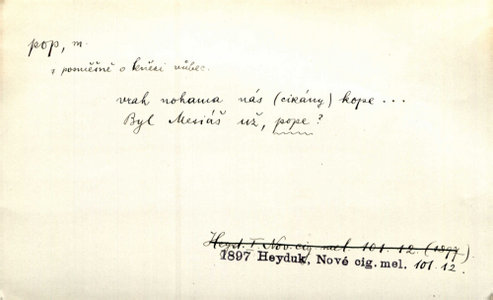 pop, m.
posměšně o knězi vůbec.
vrah nohama nás (cikány) kope...
Byl Mesiáš už, pope?
Heyd. F. Nov. cig mel. 101. 12. (1897).
1897 Heyduk, Nové cig. mel. 101. 12.